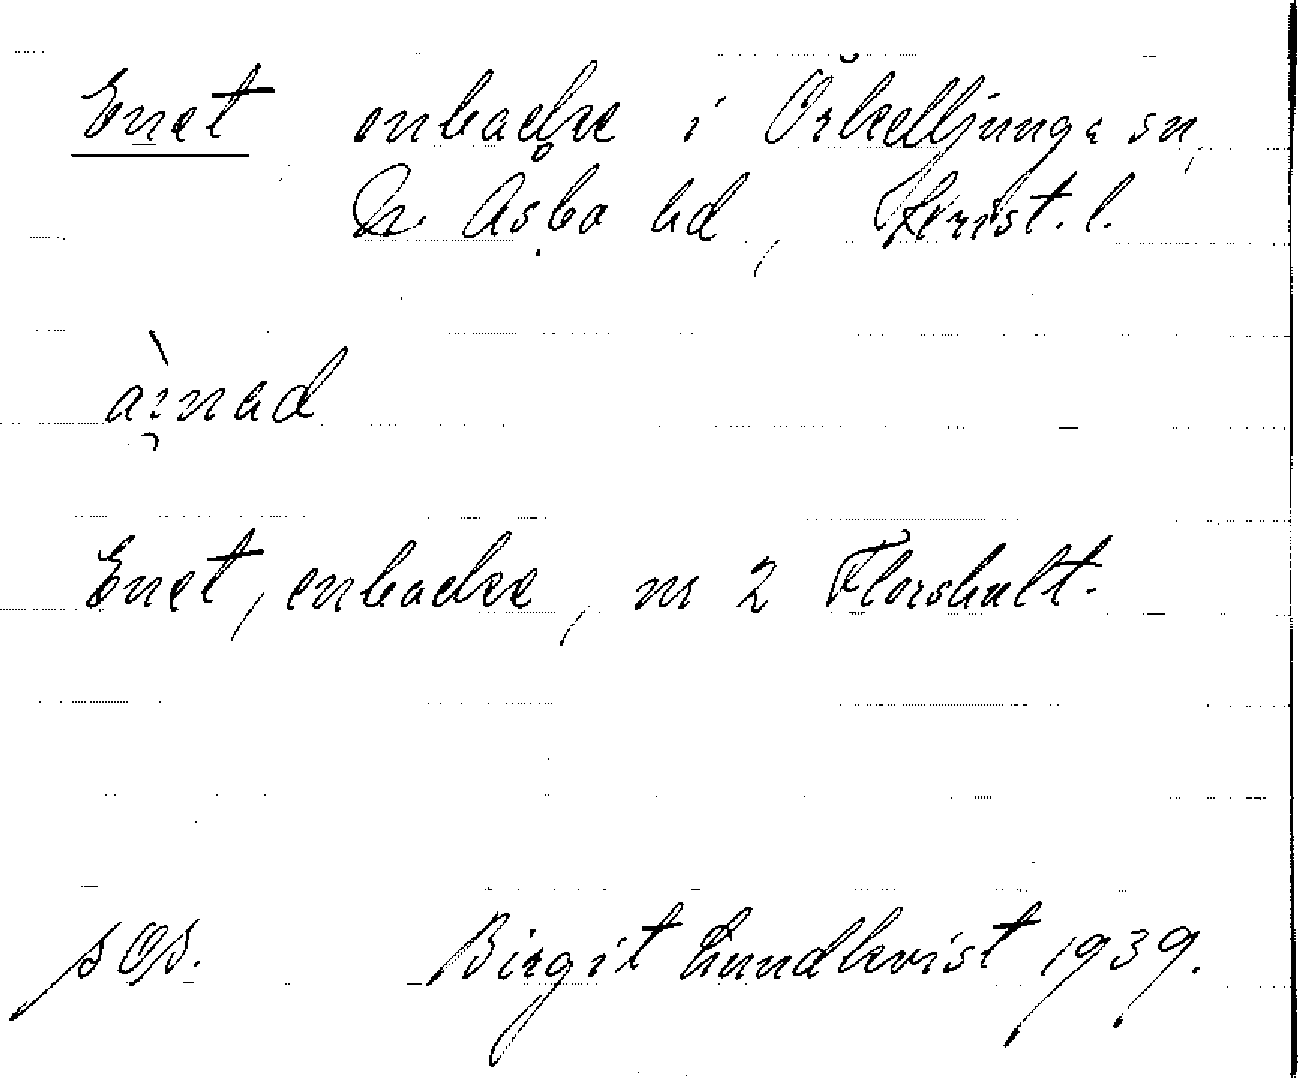 Enet enbacke i Örkelljunga sn,
N. Åsbo hd, Krist. l.
Enet, enbacke, nr 2 Florshult.
sos. Birgit Lundkvist 1939.